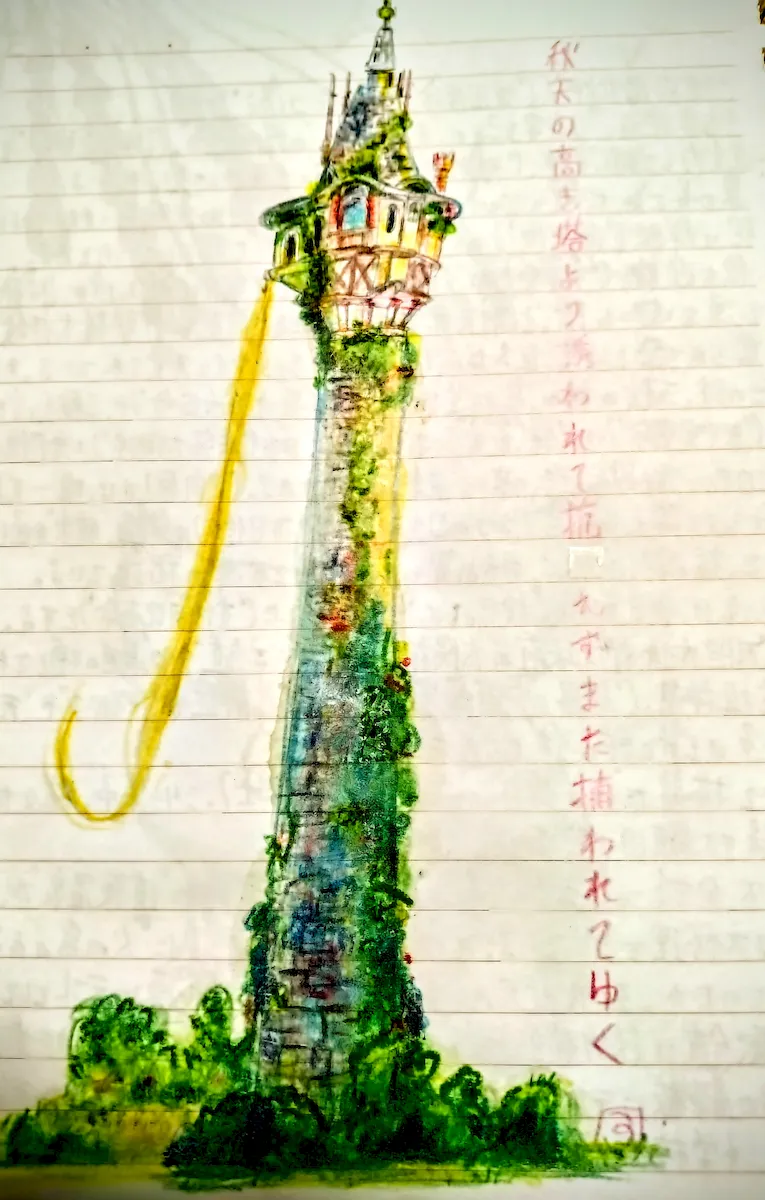 秋天の高き塔より誘われて抗えずまた捕われてゆく